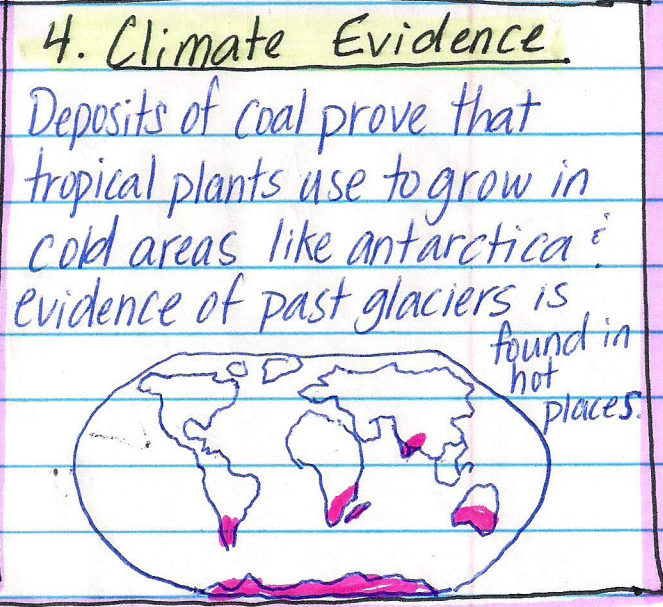 4. Climate Evidence.
Deposits of coal prove that
tropical plants use to grow in
cold areas like antarctica &
evidence of past glaciers is
found in
hot
places.